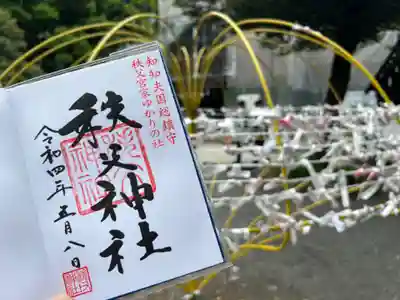 知知夫国総鎮守
秩父宮家ゆかりの社
秩父神社
令和四年五月八日